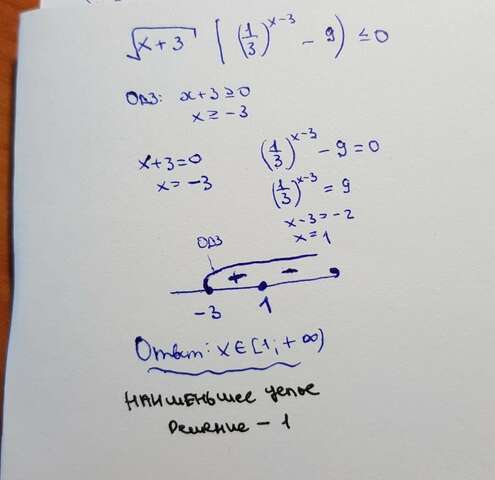 √x+3 ((1/3)^(x-3) - 9) ≤ 0
ОДЗ: x+3 ≥ 0
x ≥ -3
x+3=0
x = -3
(1/3)^(x-3) - 9 = 0
(1/3)^(x-3) = 9
x-3 = -2
x = 1
ОДЗ
+ -
-3 1
Ответ: x ∈ [1; +∞)
НАИМЕНЬШЕЕ целое
Решение - 1